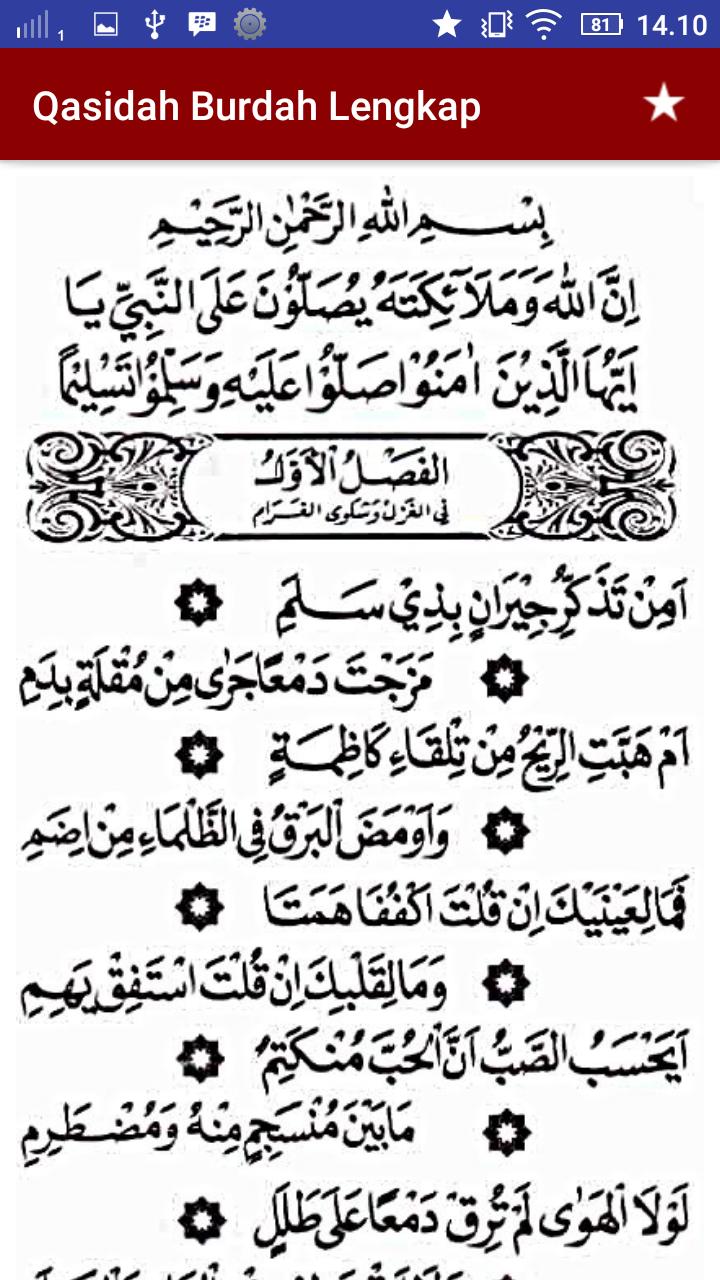 1 81 14.10
Qasidah Burdah Lengkap
بِسْمِ اللهِ الرَّحْمٰنِ الرَّحِيْمِ
اِنَّ اللهَ وَمَلَآئِكَتَهُ يُصَلُّوْنَ عَلَى النَّبِيِّ يَا
اَيُّهَا الَّذِيْنَ اٰمَنُوْا صَلُّوْا عَلَيْهِ وَسَلِّمُوْا تَسْلِيْمًا
الفَصْلُ الْاَوَّلُ
فِي الغَزْلِ وَشَكْوَى الغَرَامِ
اَمِنْ تَذَكُّرِ جِيْرَانٍ بِذِيْ سَلَمِ
مَزَجْتَ دَمْعًا جَرٰى مِنْ مُقْلَةٍ بِدَمِ
اَمْ هَبَّتِ الرِّيْحُ مِنْ تِلْقَاءِ كَاظِمَةٍ
وَاَوْمَضَ الْبَرْقُ فِي الظَّلْمَاءِ مِنْ اِضَمِ
فَمَا لِعَيْنَيْكَ اِنْ قُلْتَ اكْفُفَا هَمَتَا
وَمَا لِقَلْبِكَ اِنْ قُلْتَ اسْتَفِقْ يَهِمِ
اَيَحْسَبُ الصَّبُّ اَنَّ الْحُبَّ مُنْكَتِمٌ
مَابَيْنَ مُنْسَجِمٍ مِنْهُ وَمُضْطَرِمِ
لَوْلَا الْهَوٰى لَمْ تُرِقْ دَمْعًا عَلَى طَلَلٍ